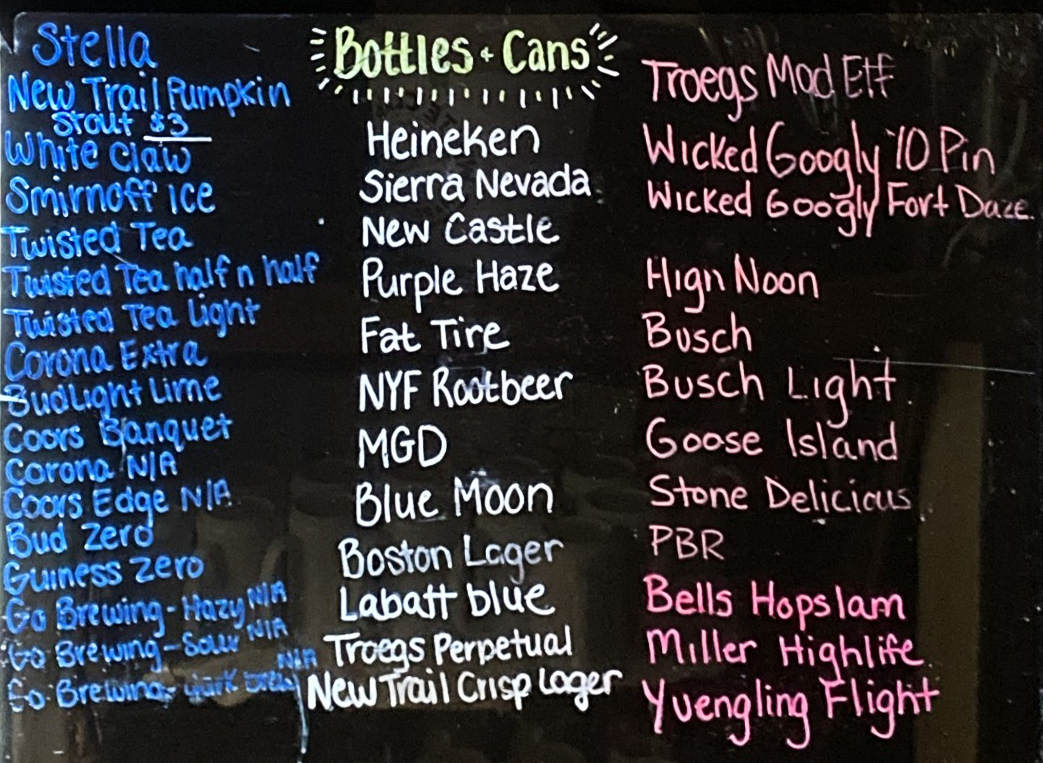 Stella
New Trail Pumpkin
Stout $3
White Claw
Smirnoff ICE
Twisted Tea
Twisted Tea half n half
Twisted Tea Light
Corona Extra
BudLight Lime
Coors Banquet
Corona N/A
Coors Edge N/A
Bud Zero
Guiness Zero
Go Brewing - Hazy N/A
Go Brewing - Sour N/A
Go Brewing - brew N/A
Bottles + Cans
Heineken
Sierra Nevada
New Castle
Purple Haze
Fat Tire
NYF Rootbeer
MGD
Blue Moon
Boston Lager
Labatt blue
Troegs Perpetual
New Trail Crisp Lager
Troegs Mad Elf
Wicked Googly 10 Pin
Wicked Googly Fort Daze
High Noon
Busch
Busch Light
Goose Island
Stone Delicious
PBR
Bells Hopslam
Miller Highlife
Yuengling Flight